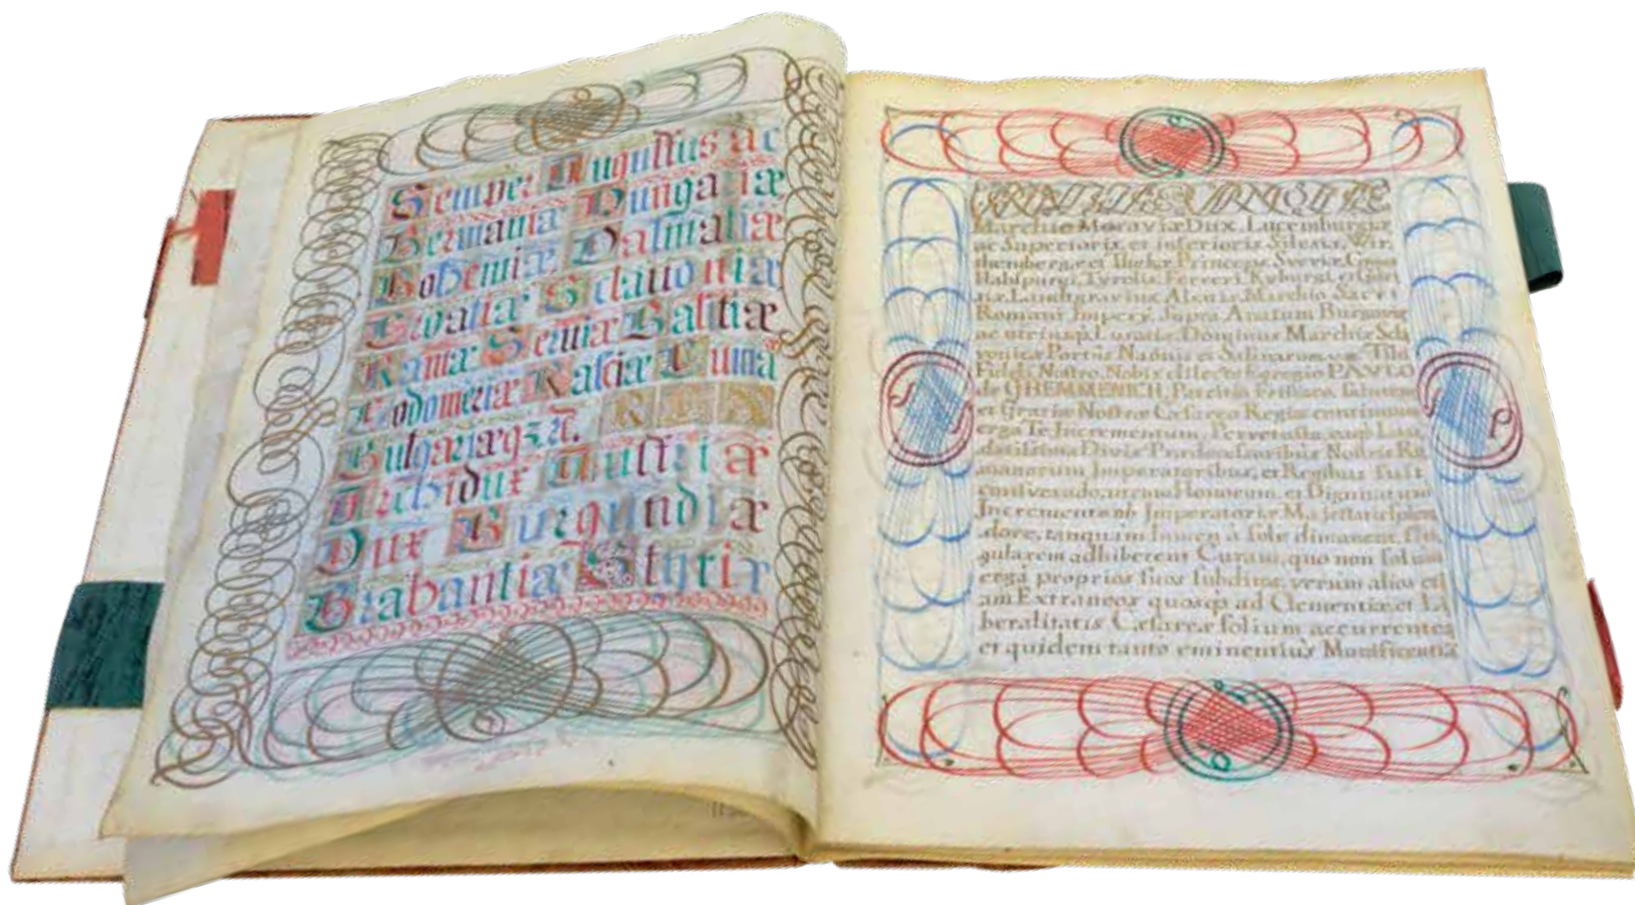 Semper Augustus ac
Germaniæ Hungariæ
Bohemiæ Dalmatiæ
Croatiæ Sclavoniæ
Ramæ Serviæ Galitiæ
Lodomeriæ Rasciæ Cuma
Bulgariæqz. REX
Archidux Austriæ
Dux Burgundiæ
Brabantiæ Styriæ
Marchio Moraviæ Dux Lucemburgiæ
ac Superioris, et inferioris Silesiæ, Vir
thembergæ et Princeps Sveviæ
Habspurg, Tyrolis Ferreti Kyburgi et Gori
tiæ, Landgravius Alsatiæ, Marchio Sacri
Romani Impery, Supra Anasum Burgoviæ
ac utriusqz Lusatiæ Dominus Marchiæ Scla
vonicæ Portûs Naonis et Salinarum
Fideli Nostro Nobis dilecto Egregio PAVLO
de GHEMMENICH,
et Gratiæ Nostræ Cæsareo Regiæ continuum
erga Te Incrementum.
Divis Prædecessoribus Nostris Ro
manorum Imperatoribus, et Regibus fuit
Honorum, et Dignitatum
Incrementa ob Imperatoriæ Majestatis splen
dore, tanquam lumen à sole dimanent,
gularem adhiberent Curam, quo non solum
erga proprios suos subditos, verum alios eti
am Extraneos quosqz ad Clementiæ et Li
beralitatis Cæsareæ solium accurrentes
et quidem tanto eminentius Munificentiæ